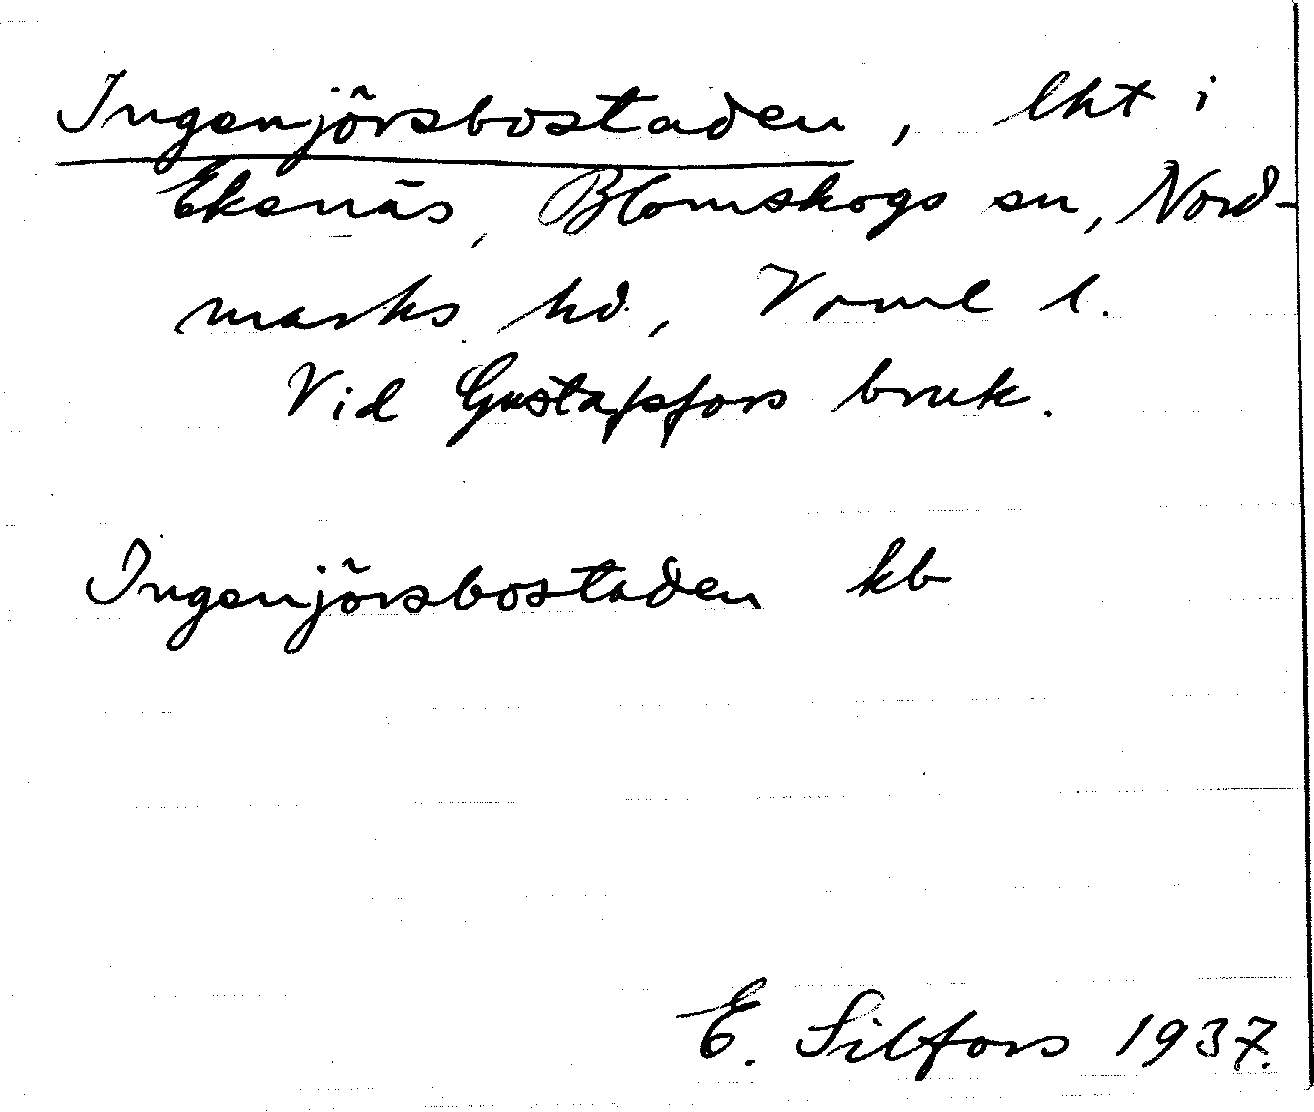 Ingenjörsbostaden, lht i
Ekenäs, Blomskogs sn, Nord-
marks hd, Vrml l.
Vid Gustafsfors bruk.
Ingenjörsbostaden kb
E. Silfors 1937.